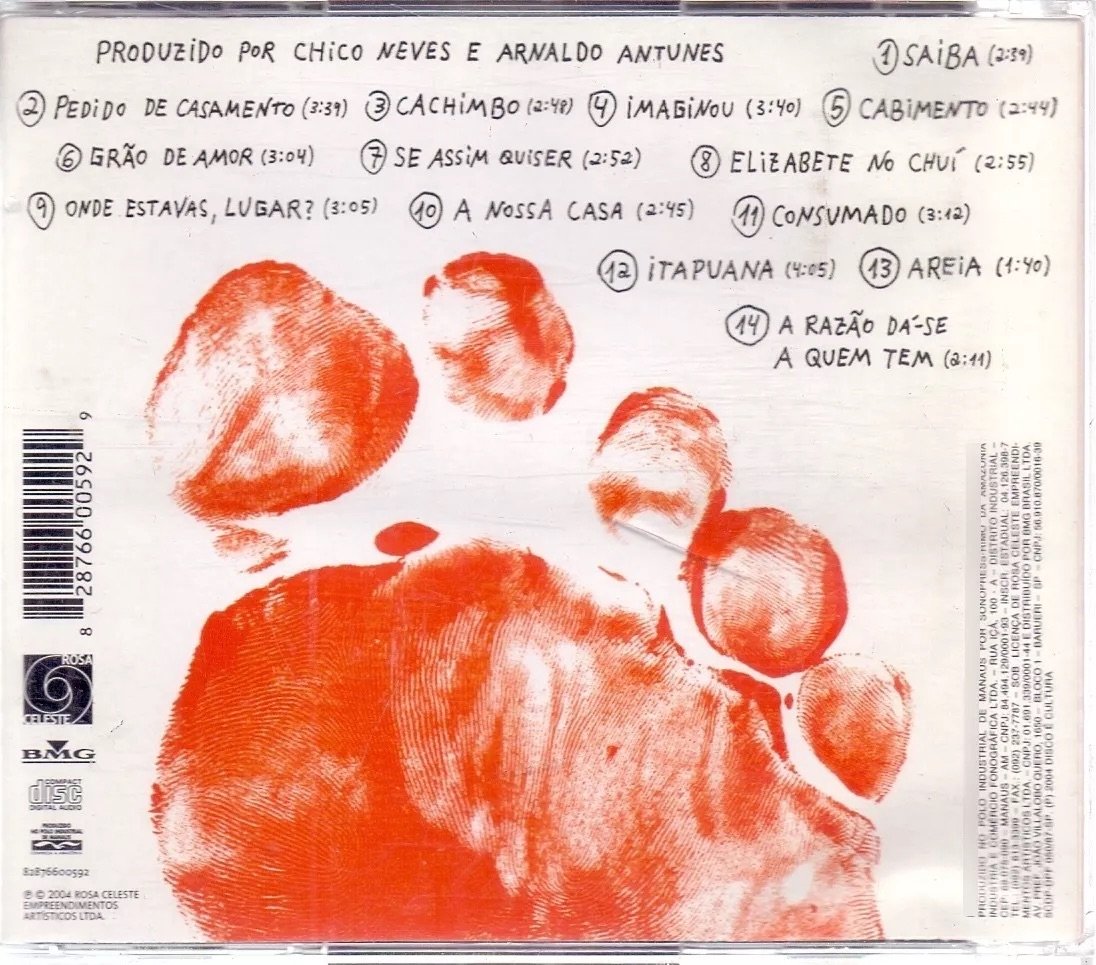 PRODUZIDO POR CHICO NEVES E ARNALDO ANTUNES
1 SAIBA (2:39)
2 PEDIDO DE CASAMENTO (3:39) 3 CACHIMBO (2:48) 4 IMAGINOU (3:40) 5 CABIMENTO (2:44)
6 GRÃO DE AMOR (3:04) 7 SE ASSIM QUISER (2:52) 8 ELIZABETE NO CHUÍ (2:55)
9 ONDE ESTAVAS, LUGAR? (3:05) 10 A NOSSA CASA (2:45) 11 CONSUMADO (3:12)
12 ITAPUANA (4:05) 13 AREIA (1:40)
14 A RAZÃO DÁ-SE
A QUEM TEM (2:11)
8 28766 00592 9
ROSA
CELESTE
BMG
COMPACT
disc
DIGITAL AUDIO
PRODUZIDO
NO PÓLO INDUSTRIAL
DE MANAUS
82876600592
℗ © 2004 ROSA CELESTE
EMPREENDIMENTOS
ARTÍSTICOS LTDA.
PRODUZIDO NO PÓLO INDUSTRIAL DE MANAUS POR SONOPRESS-RIMO DA AMAZÔNIA
INDÚSTRIA E COMÉRCIO FONOGRÁFICA LTDA. – RUA IÇÁ, 100 - A – DISTRITO INDUSTRIAL –
CEP 69.075-090 – MANAUS – AM – CNPJ: 84.494.129/0001-93 – INSCR. ESTADUAL: 04.126.398-7
TEL.: (092) 613-3399 – FAX.: (092) 237-7787 – SOB LICENÇA DE ROSA CELESTE EMPREENDI-
MENTOS ARTÍSTICOS LTDA. – CNPJ: 01.691.339/0001-44 E DISTRIBUÍDO POR BMG BRASIL LTDA.
AV. PREF. JOÃO VILLALOBO QUERO, 1650 – BLOCO 1 – BARUERI – SP – CNPJ: 56.910.870/0016-39
SCDP-DPF 050/87-SP. (P) 2004 DISCO É CULTURA